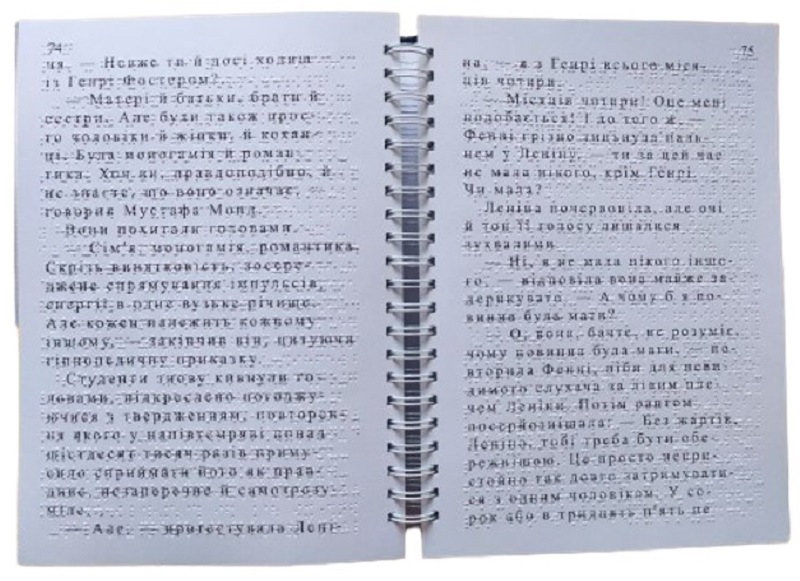 74
ня. — Невже ти й досі ходиш
із Генрі Фостером?
— Матері й батьки, брати й
сестри. Але були також прос-
то чоловіки й жінки, й кохан-
ці. Була моногамія й роман-
тика. Хоч ви, правдоподібно, й
не знаєте, що воно означає, —
говорив Мустафа Монд.
Вони похитали головами.
— Сім'я, моногамія, романтика.
Скрізь винятковість, зосере-
джене спрямування імпульсів,
енергії в одне вузьке річище.
Але кожен належить кожному
іншому, — закінчив він, цитуючи
гіпнопедичну приказку.
Студенти знову кивнули го-
ловами, підкреслено погоджу-
ючися з твердженням, повторен-
ня якого у напівтемряві понад
шістдесят тисяч разів приму-
сило сприймати його як прав-
диве, незаперечне й самозрозу-
міле.
— Але, — протестувала Лені-
75
на, — я з Генрі всього міся-
ців чотири.
— Місяців чотири! Оце мені
подобається! І до того ж, —
Фенні грізно тицьнула паль-
цем у Леніну, — ти за цей час
не мала нікого, крім Генрі.
Чи мала?
Леніна почервоніла, але очі
й тон її голосу лишалися
зухвалими.
— Ні, я не мала нікого іншо-
го, — відповіла вона майже за-
дерикувато. — А чому б я по-
винна була мати?
— О, вона, бачте, не розуміє,
чому повинна була мати, — по-
вторила Фенні, ніби для неви-
димого слухача за лівим пле-
чем Леніни. Потім раптом
посерйознішала: — Без жартів,
Леніно, тобі треба бути обе-
режнішою. Це просто непри-
стойно так довго затримувати-
ся з одним чоловіком. У со-
рок або в тридцять п'ять це